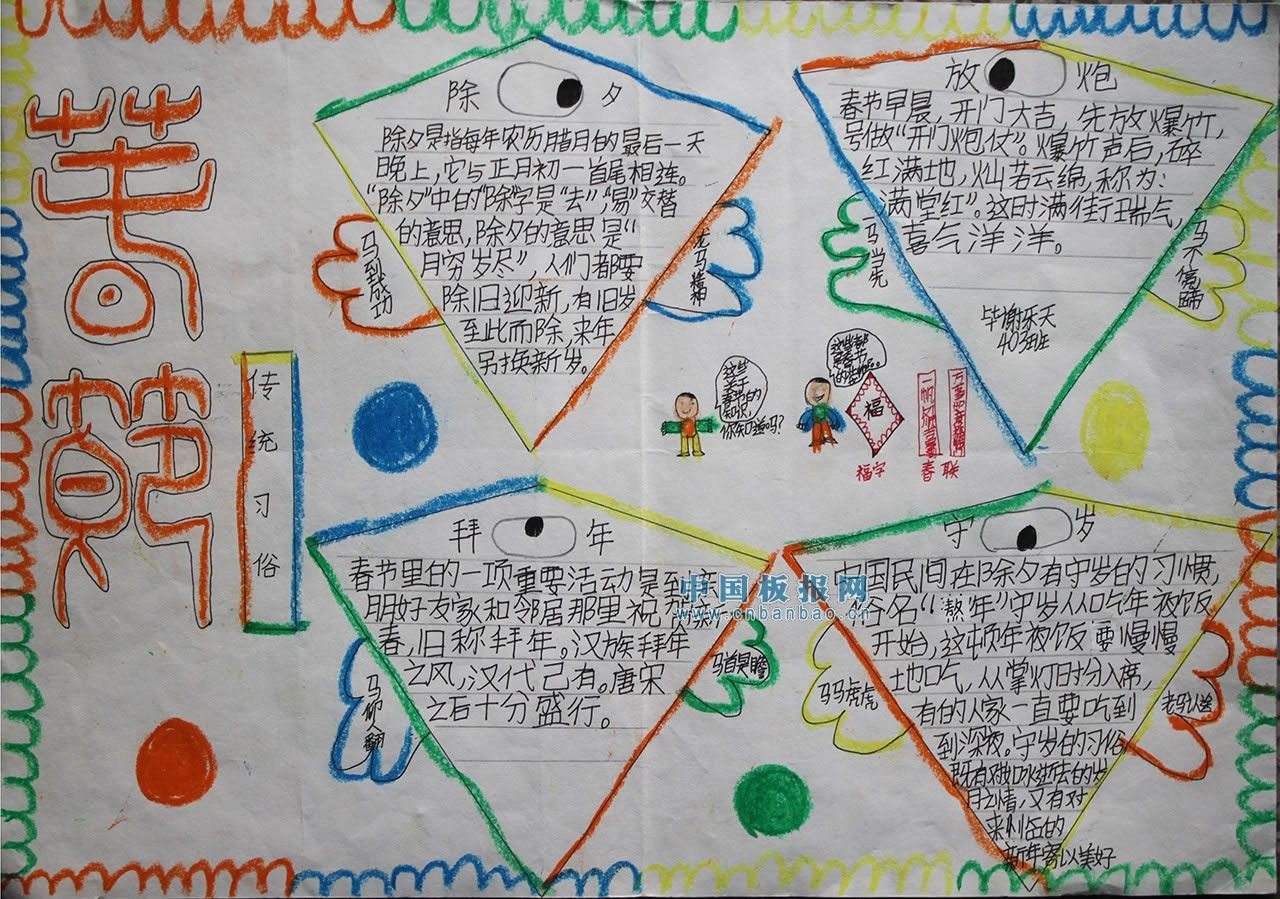 春節
传统习俗
除夕
除夕是指每年农历腊月的最后一天
晚上，它与正月初一首尾相连。
“除夕”中的“除”字是“去”“易”交替
的意思，除夕的意思是“
月穷岁尽”，人们都要
除旧迎新，有旧岁
至此而除，来年
另换新岁。
马到成功
龙马精神
放炮
春节早晨，开门大吉，先放爆竹，
号做“开门炮仗”。爆竹声后，碎
红满地，灿若云绵，称为：
满堂红”。这时满街瑞气，
喜气洋洋。
马当先
马不停蹄
毕谢乐天
403班
这些
关于
春节的
知识，
你知道吗？
福
福字
春联
拜年
春节里的一项重要活动是到亲
朋好友家和邻居那里祝贺新
春，旧称拜年。汉族拜年
之风，汉代已有。唐宋
之后十分盛行。
马仰翻
马首是瞻
守岁
中国民间在除夕有守岁的习惯，
俗名“熬年”守岁从吃年夜饭
开始，这顿年夜饭要慢慢
地吃，从掌灯时分入席，
有的人家一直要吃到
到深夜。守岁的习俗
既有对如水逝去的岁
月之情，又有对
来到临的
新年寄以美好
马马虎虎
老马识途
中国板报网
www.cnbanbao.cn